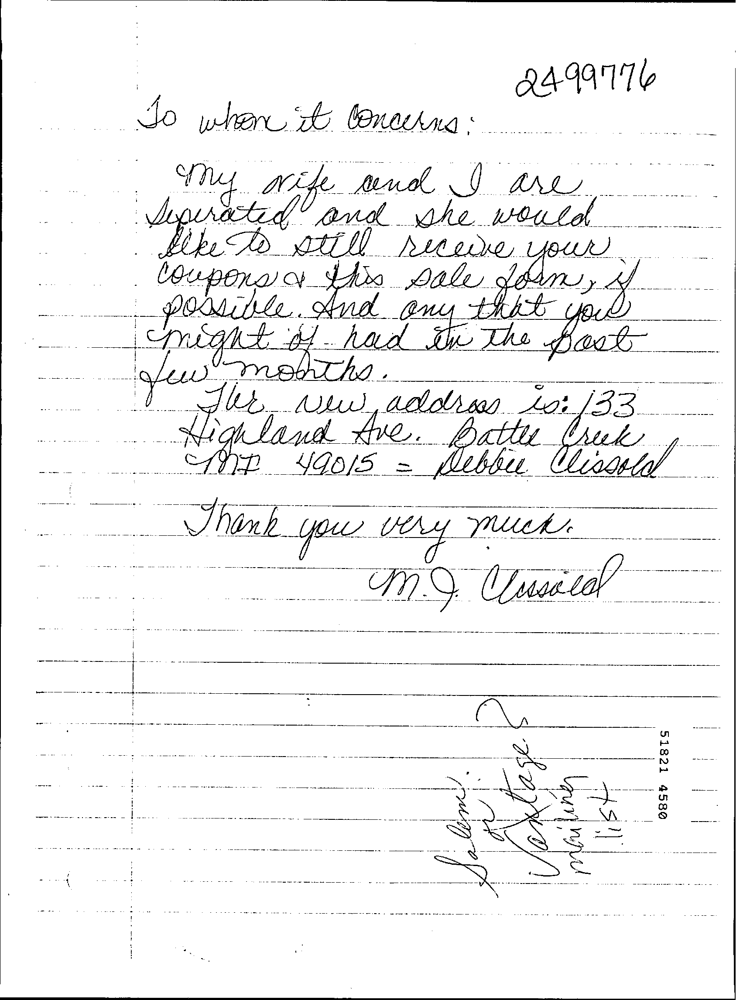 2499776
To whom it concerns:
My wife and I are
seperated and she would
like to still receive your
coupons & this sale form, if
possible. And any that you
might of had in the past
few months.
Her new address is: 133
Highland Ave. Battle Creek
MI 49015 = Debbie Clissold
Thank you very much.
M. J. Clissold
Salem?
or
Vantage?
mailing
list
51821 4580